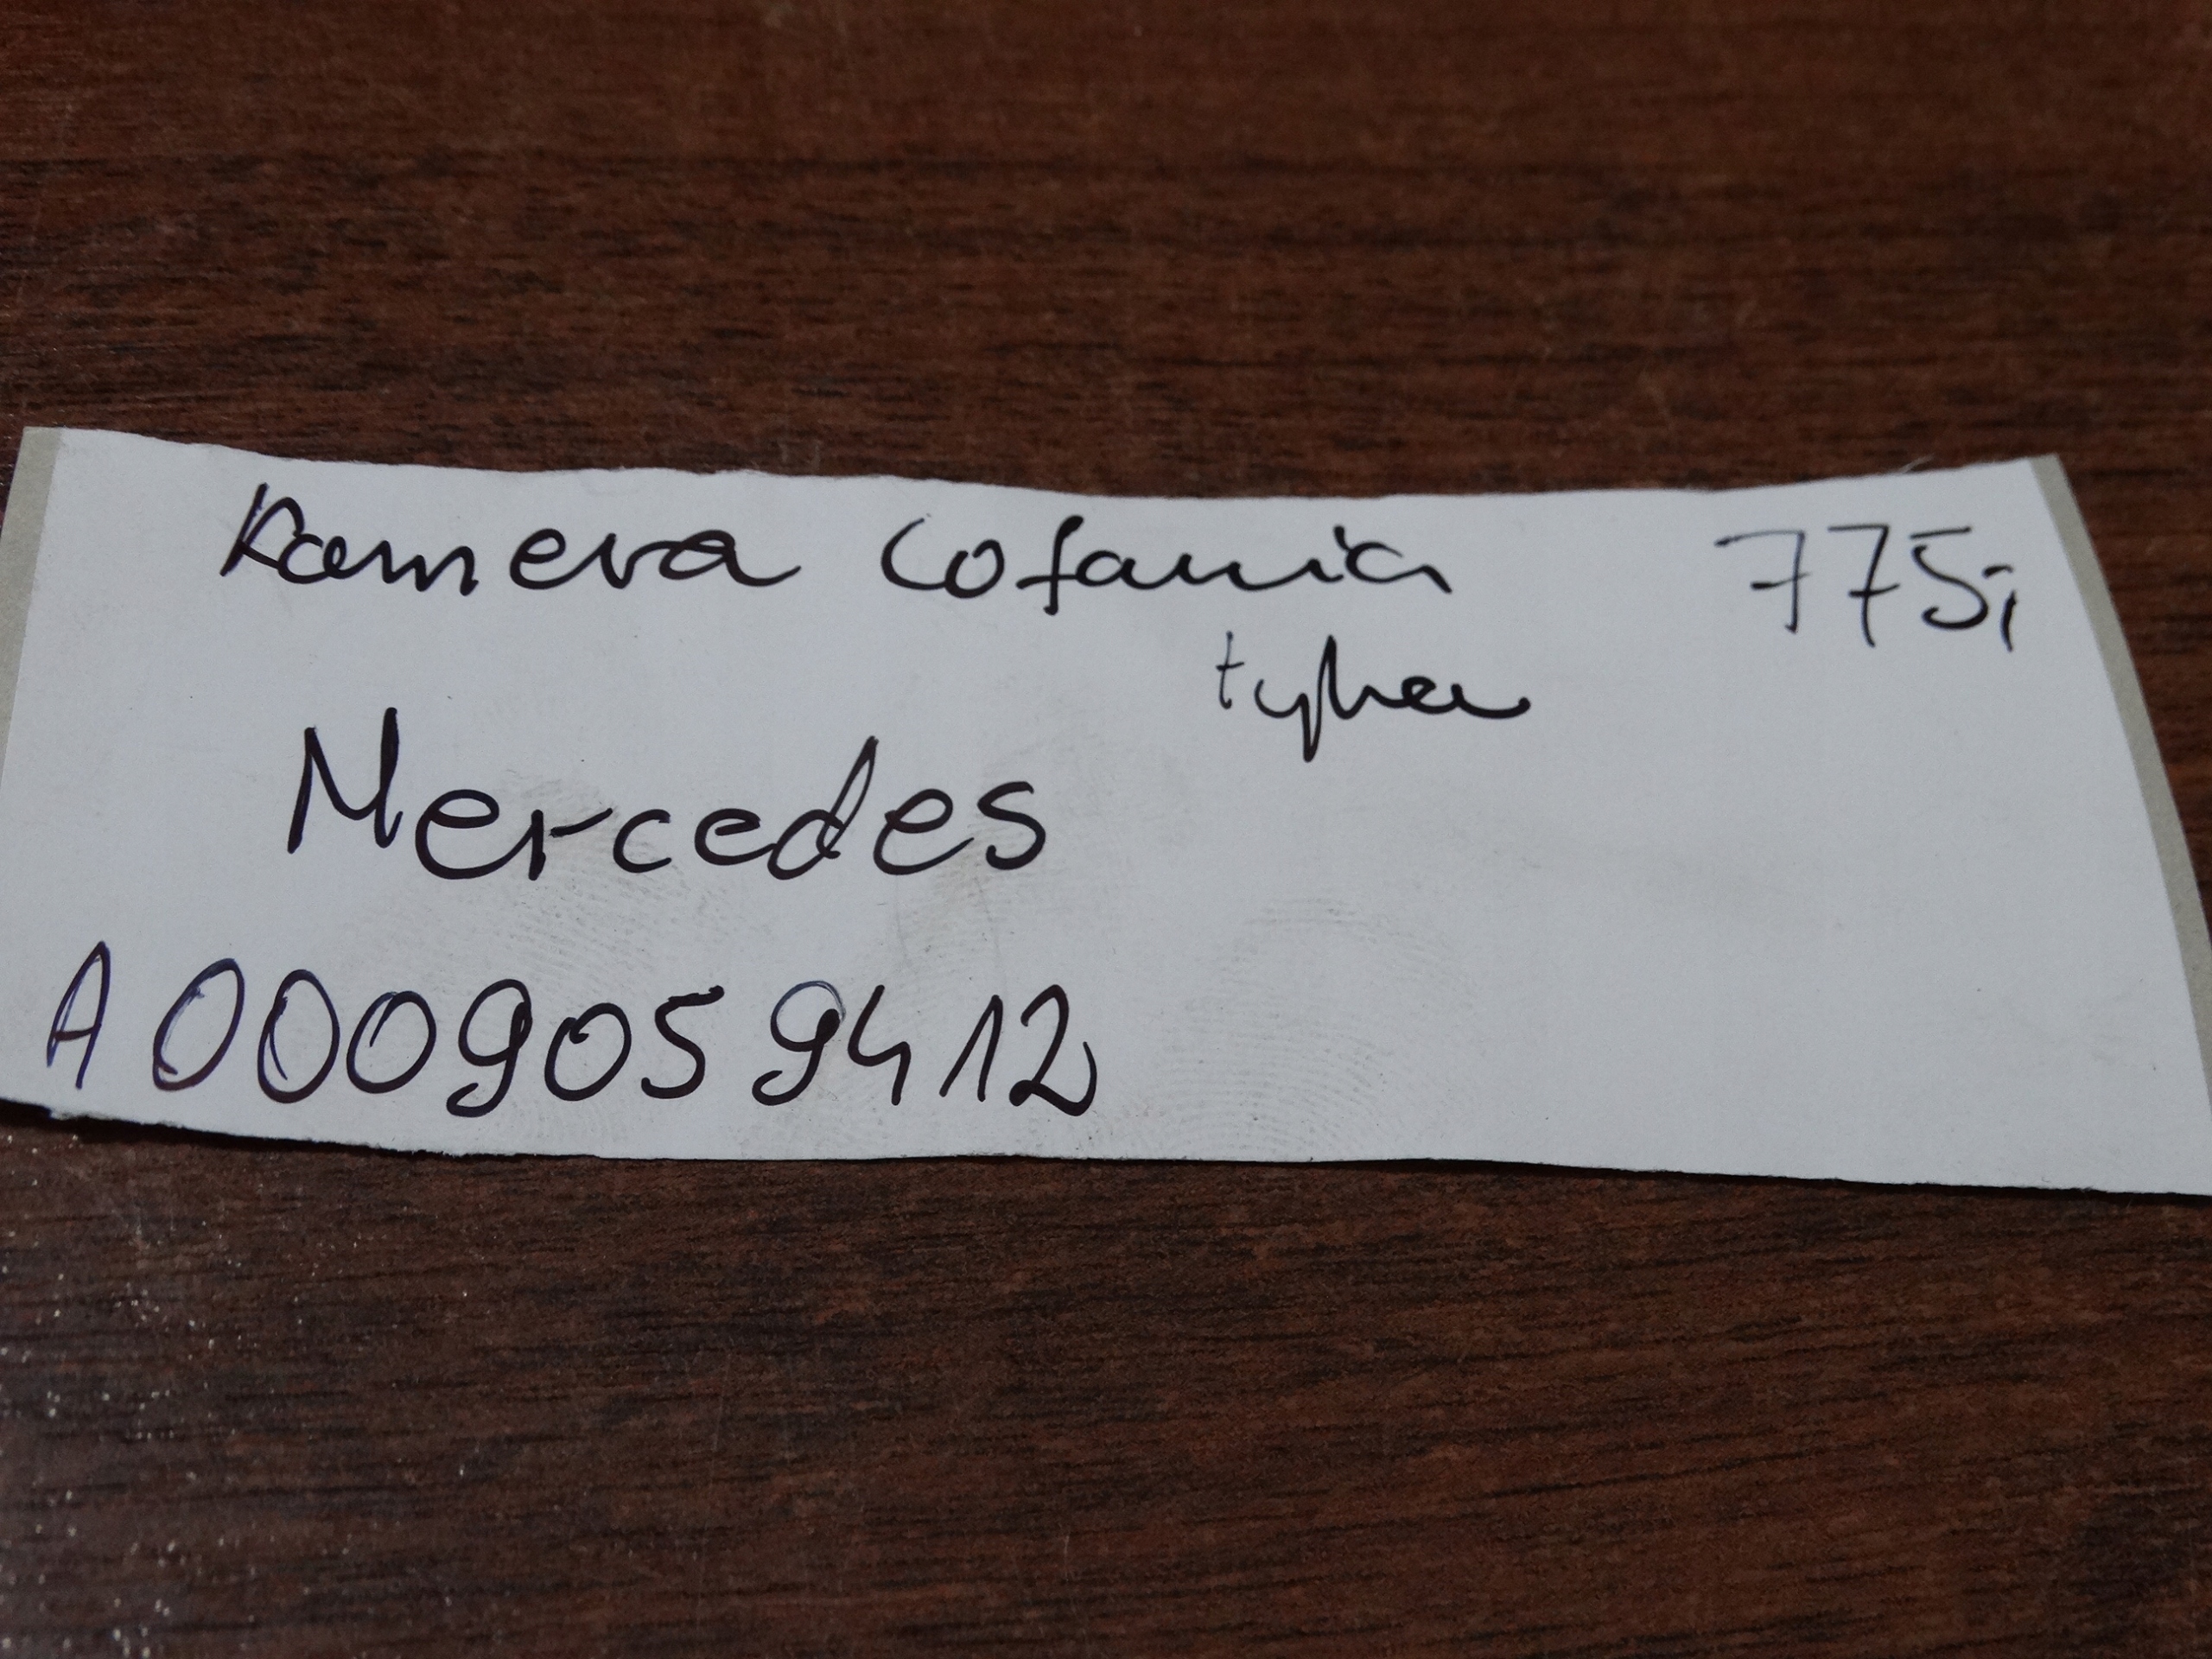 Kamera cofania 775i
tylna
Mercedes
A0009059412